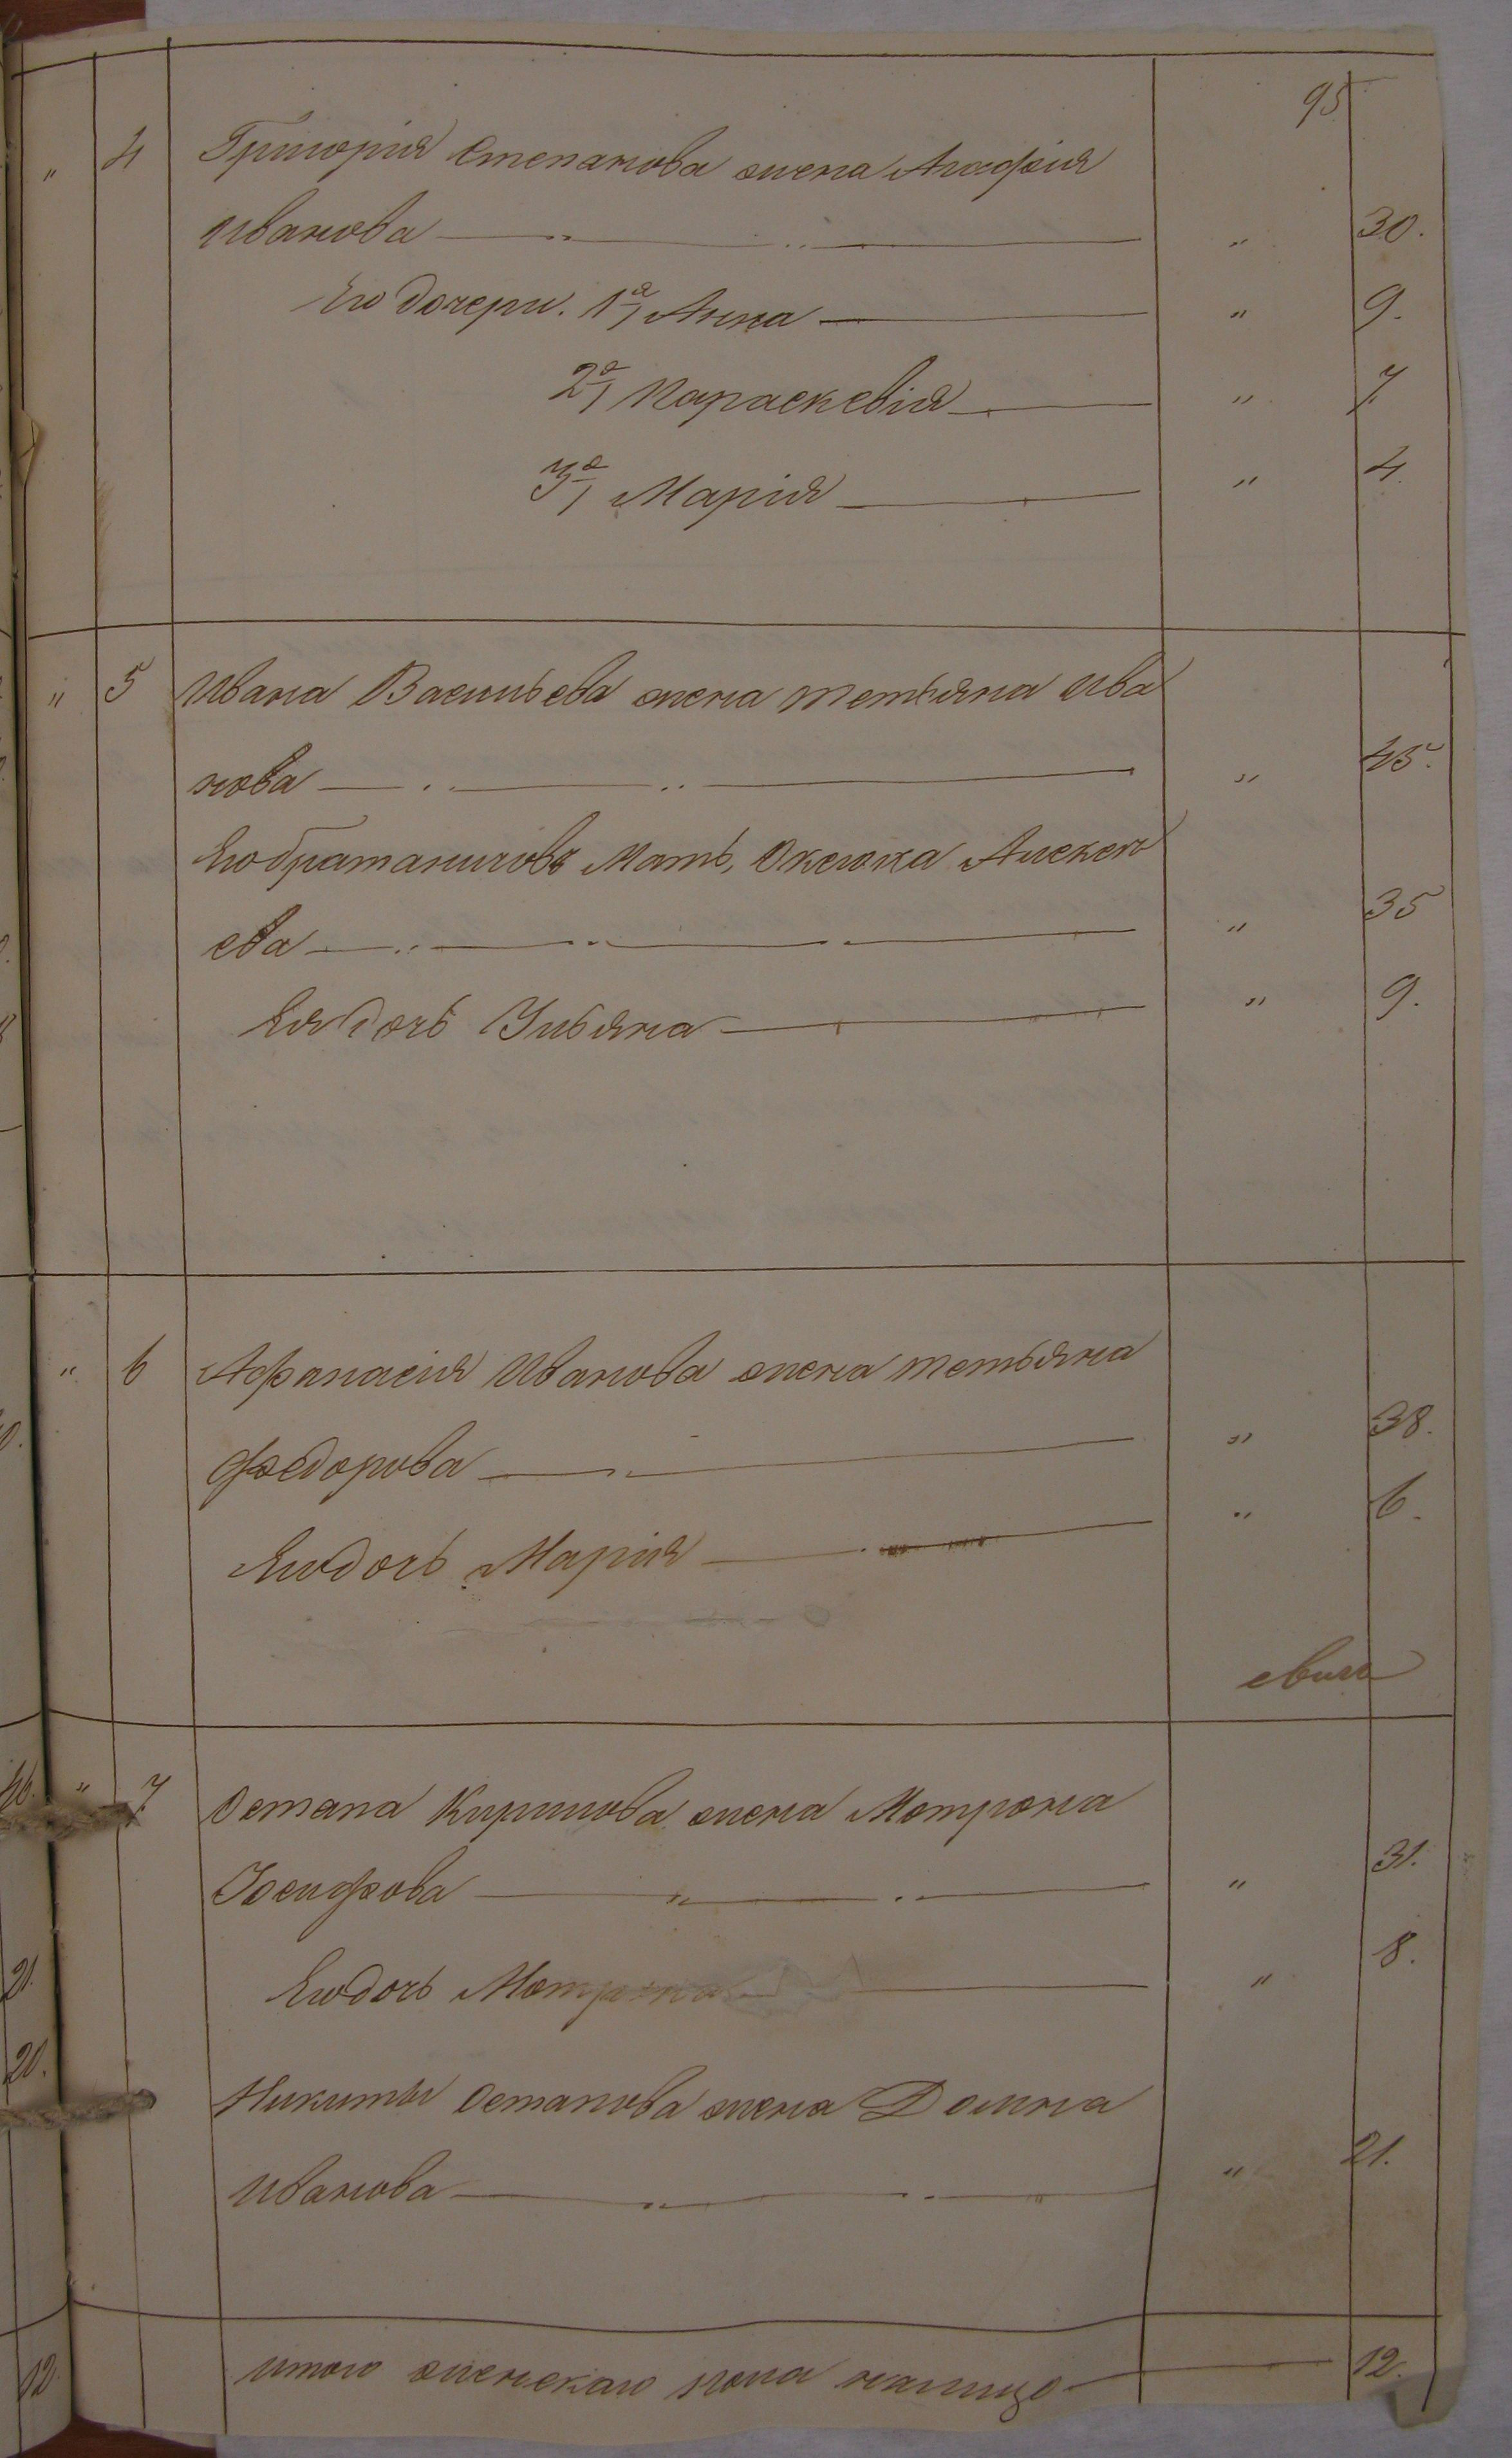 95
" 4 Григорія Степанова жена Агафія
Иванова " 30.
Его дочери. 1я/ Анна " 9.
2я/ Параскевія " 7.
3я/ Марія " 4.
" 5 Ивана Васильева жена Тетьяна Ива
нова " 45.
Его братаничовъ Мать, Оксюка Алексе
ева " 35
Ея дочь Ульяна " 9.
" 6 Афанасія Иванова жена Тетьяна
Федорова " 38.
Его дочь Марія " 6.
" 7 Остапа Кирилова жена Мотрона
Іосифова " 31.
Его дочь Мотрона " 8.
Никиты Остапова жена Домна
Иванова " 21.
итого женскаго пола налицо 12.
46.
21.
20.
12.